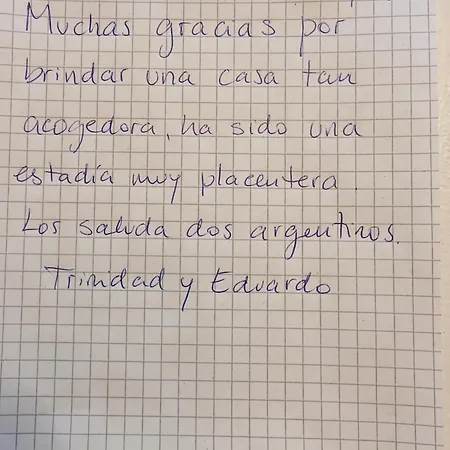 Muchas gracias por
brindar una casa tan
acogedora, ha sido una
estadía muy placentera.
Los saluda dos argentinos.
Trinidad y Eduardo